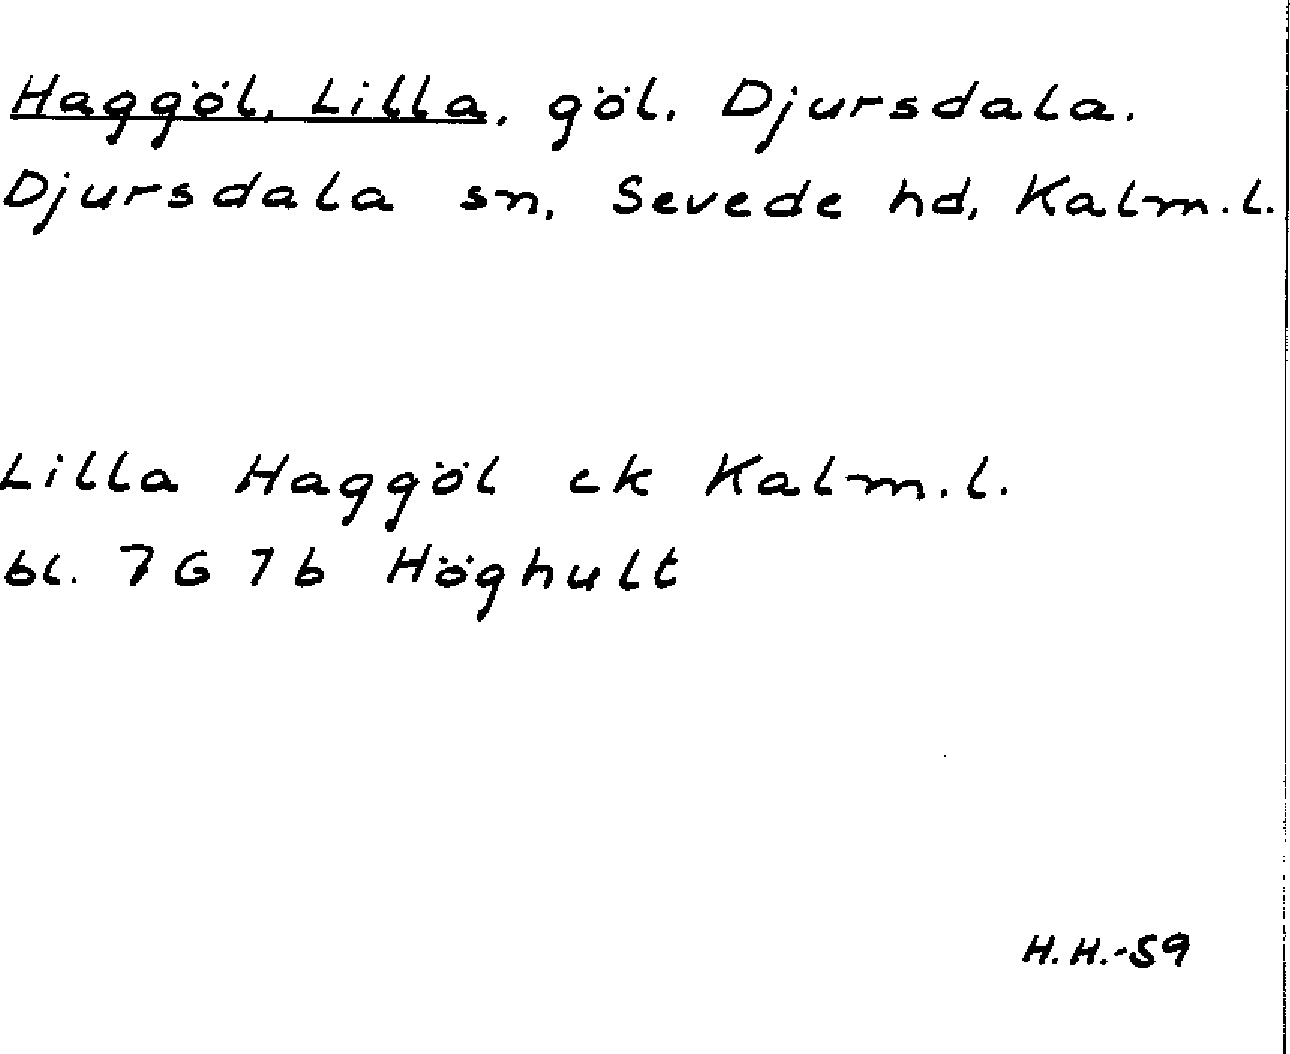 Haggöl, Lilla, göl. Djursdala.
Djursdala sn, Sevede hd, Kalm.l.
Lilla Haggöl ek Kalm.l.
bl. 7G 7b Höghult
H.H.-59